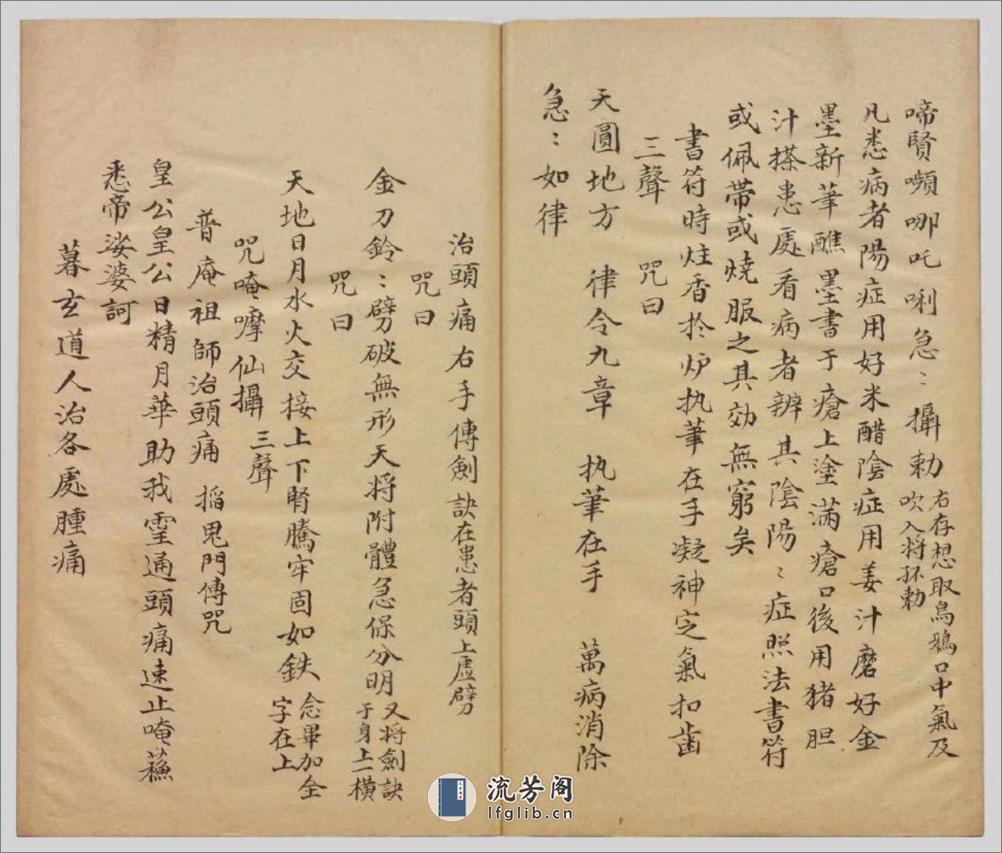 啼賢嚬哪吒唎急〻攝勅右存想取烏鴉口中氣及
吹入將환勅
凡悉病者陽症用好米醋陰症用姜汁磨好金
墨新筆醮墨書于瘡上塗滿瘡口後用猪胆
汁搽患處看病者辨其陰陽〻症照法書符
或佩帶或燒服之其効無窮矣
書符時炷香扵炉执筆在手凝神定氣扣齒
三聲 咒曰
天圓地方 律令九章 执筆在手 萬病消除
急〻如律
治頭痛右手傳劍訣在患者頭上虛劈
咒曰
金刀鈴〻劈破無形天將附體急保分明又將劍訣
于身上一橫
咒曰
天地日月水火交接上下腎騰牢固如鉄念畢加全
字在上
咒唵嚤仙攝 三聲
普庵祖師治頭痛 搯鬼門傳咒
皇公皇公日精月華助我霊通頭痛速止唵蘓
悉帝娑婆訶
暮玄道人治各處腫痛
流芳阁
lfglib.cn